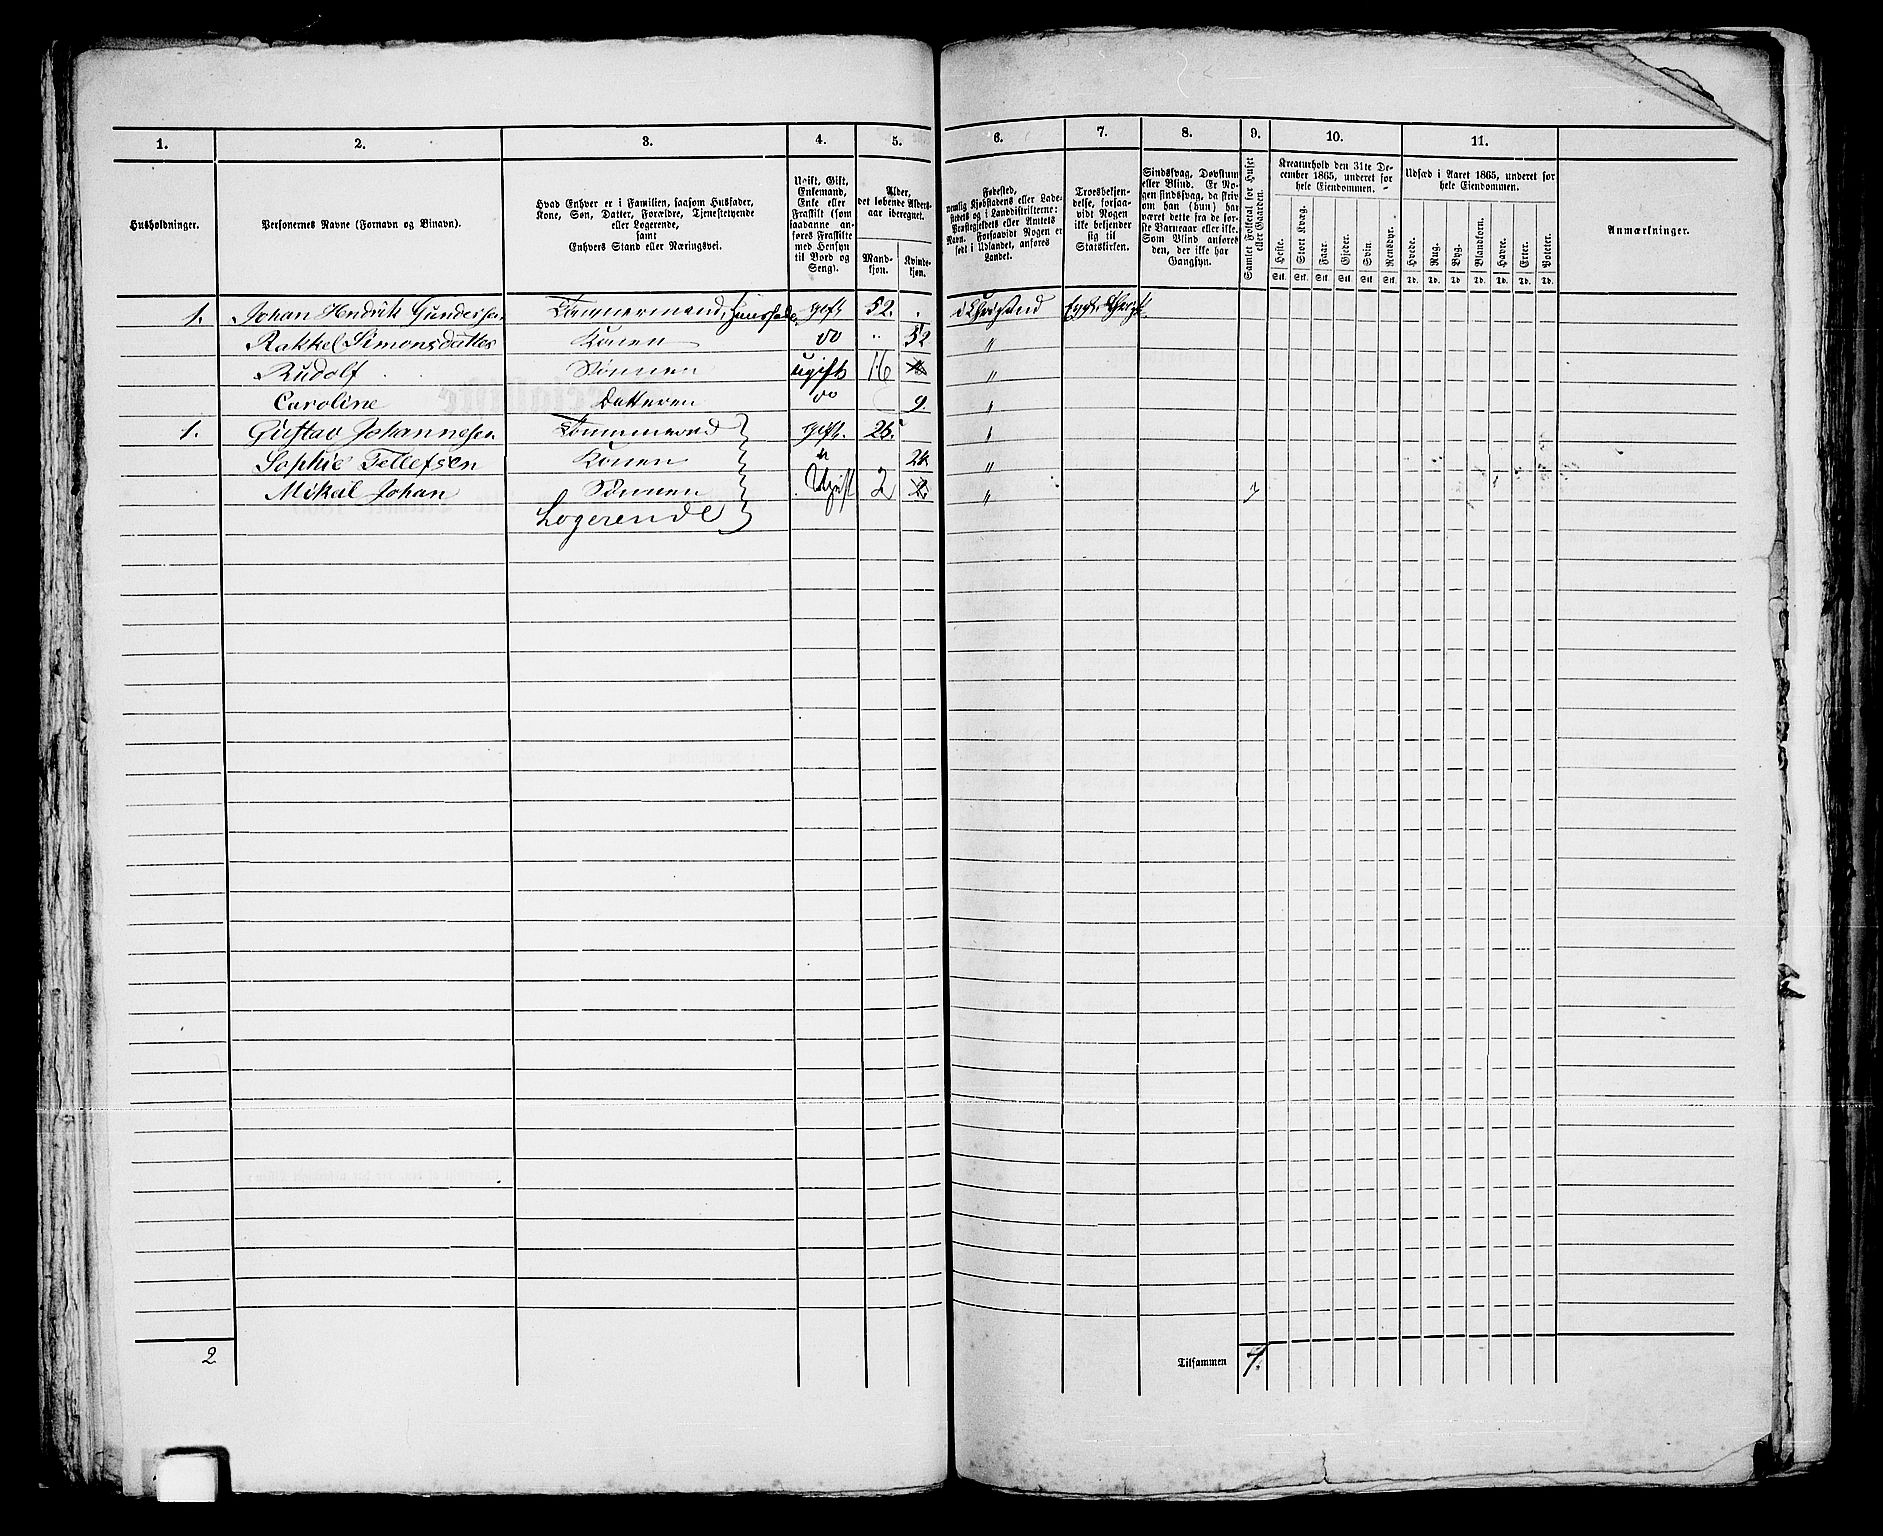 1. 2. 3. 4. 5. 6. 7. 8. 9. 10. 11.
Husholdninger.
Personernes Navne (Fornavn og Binavn).
Hvad Enhver er i Familien, saasom Husfader,
Kone, Søn, Datter, Forældre, Tjenestetyende
eller Logerende,
samt
Enhvers Stand eller Næringsvei.
Ugift, Gift,
Enkemand,
Enke eller
Fraskilt (som
saadanne anføres Fraskilte
med Hensyn
til Bord og
Seng).
Alder,
det løbende Aldersaar iberegnet.
Mandkjøn.
Kvindekjøn.
Fødested,
nemlig Kjøbstadens eller Ladestedets og i Landdistrikterne:
Præstegjeldets eller Amtets
Navn. Forsaavidt Nogen er
født i Udlandet, anføres
Landet.
Troesbekjendelse, forsaavidt Nogen
ikke bekjender
sig til
Statskirken.
Sindssvag, Døvstum
eller Blind. Er Nogen sindssvag, da skrives om han (hun) har
været dette fra de første Barneaar eller ikke.
Som Blind anføres
den, der ikke har
Gangsyn.
Samlet Folketal for Huset
eller Gaarden.
Kreaturhold den 31te December 1865, underet for
hele Eiendommen.
Heste. Stort Kvæg. Faar. Gjeder. Svin. Rensdyr.
Stk. Stk. Stk. Stk. Stk. Stk.
Udsæd i Aaret 1865, underet for
hele Eiendommen.
Hvede. Rug. Byg. Blandkorn. Havre. Erter. Poteter.
Td. Td. Td. Td. Td. Td. Td.
Anmærkninger.
1. Johan Hendrik Gundersen Tømmermand, Huusfader gift 52. i Chrisand
Rakkel Simonsdatter Konen do " 52 "
Rudolf Sønnen ugift 16 "
Caroline Datteren do 9. "
1. Gustav Johannesen Tømmermand gift. 25. "
Sophie Tellefsen Konen " 24 "
Mikal Johan Sønnen Ugift 2 "
Logerende
2 Tilsammen 7.